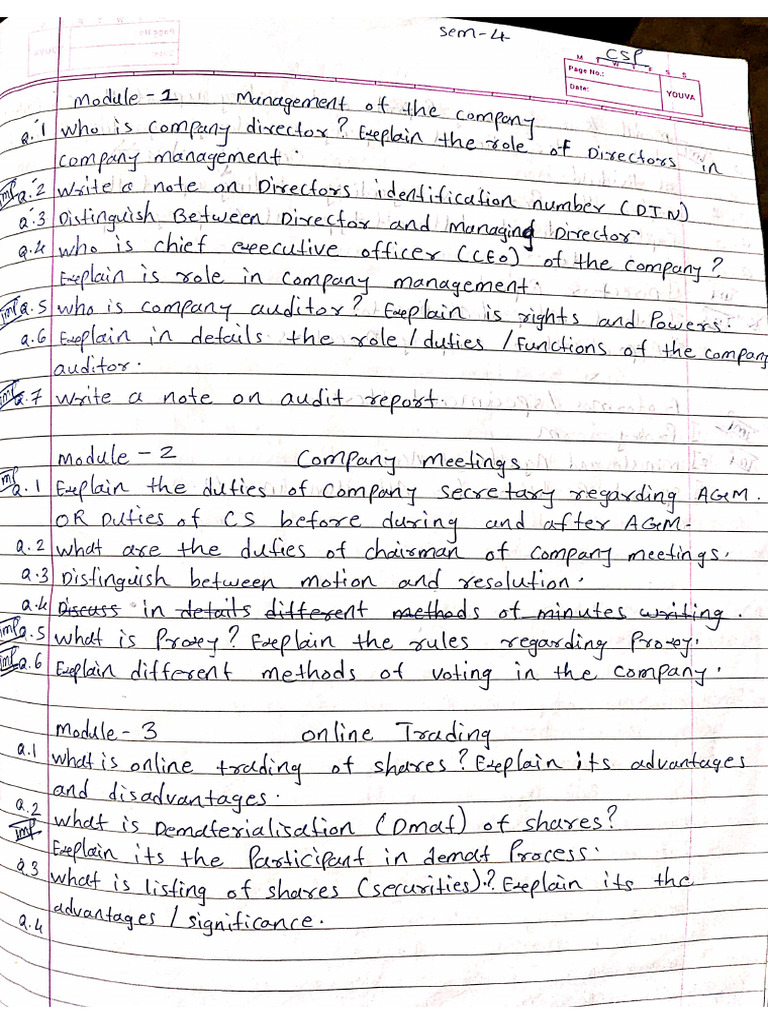 sem-4
CSP
M T W T F S S
Page No.:
Date:
YOUVA
Module-1 Management of the company
Q.1 Who is company director? Explain the role of Directors in
company management.
Imp Q.2 Write a note on Directors identification number (DIN)
Q.3 Distinguish Between Director and Managing Director
Q.4 Who is chief executive officer (CEO) of the company?
Explain is role in company management.
Imp Q.5 Who is company auditor? Explain is rights and Powers.
Q.6 Explain in details the role/duties/Functions of the company
auditor.
Imp Q.7 Write a note on audit report.
Module-2 Company Meetings
Imp Q.1 Explain the duties of Company secretary regarding AGM.
OR Duties of CS before during and after AGM-
Q.2 What are the duties of chairman of company meetings.
Q.3 Distinguish between motion and resolution.
Q.4 Discuss in details different methods of minutes writing.
Imp Q.5 What is Proxy? Explain the rules regarding Proxy.
Imp Q.6 Explain different methods of voting in the company.
Module-3 Online Trading
Q.1 What is online trading of shares? Explain its advantages
and disadvantages.
Q.2 What is Dematerialisation (Dmat) of shares?
Imp Explain its the Participant in demat Process.
Q.3 What is listing of shares (securities)? Explain its the
advantages/significance.
Q.4